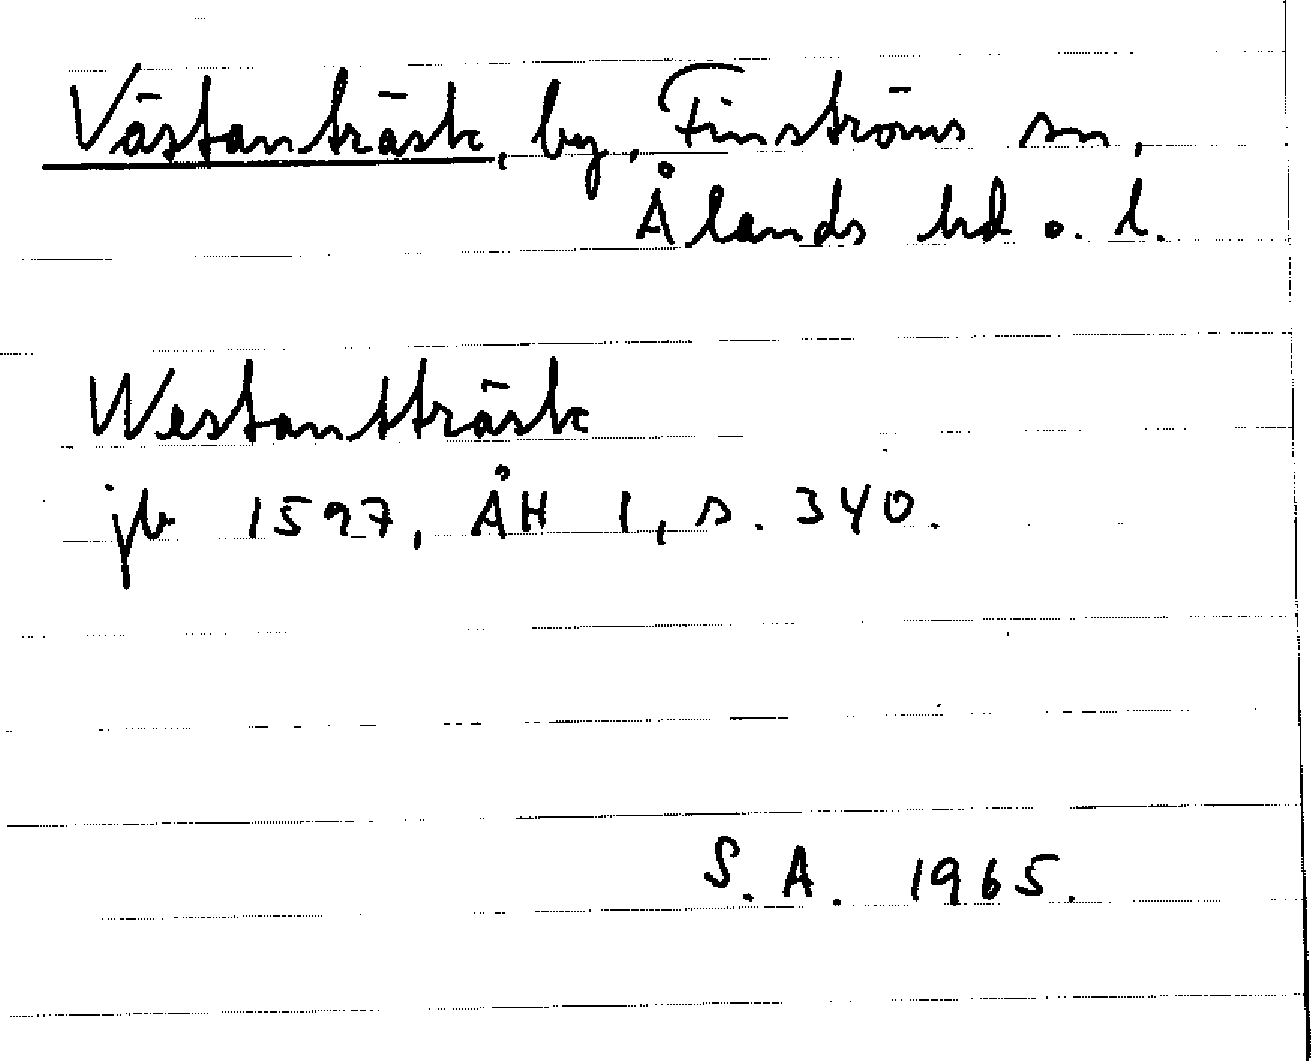 Västanträsk, by, Finströms sn,
Ålands hd o. l.
Westantträsk
jb 1597, ÅH 1, s. 340.
S. A. 1965.